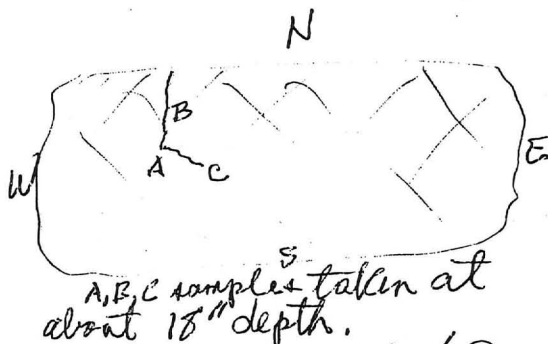 N
B
A
C
W
E
S
A, B, C samples taken at
about 18" depth.